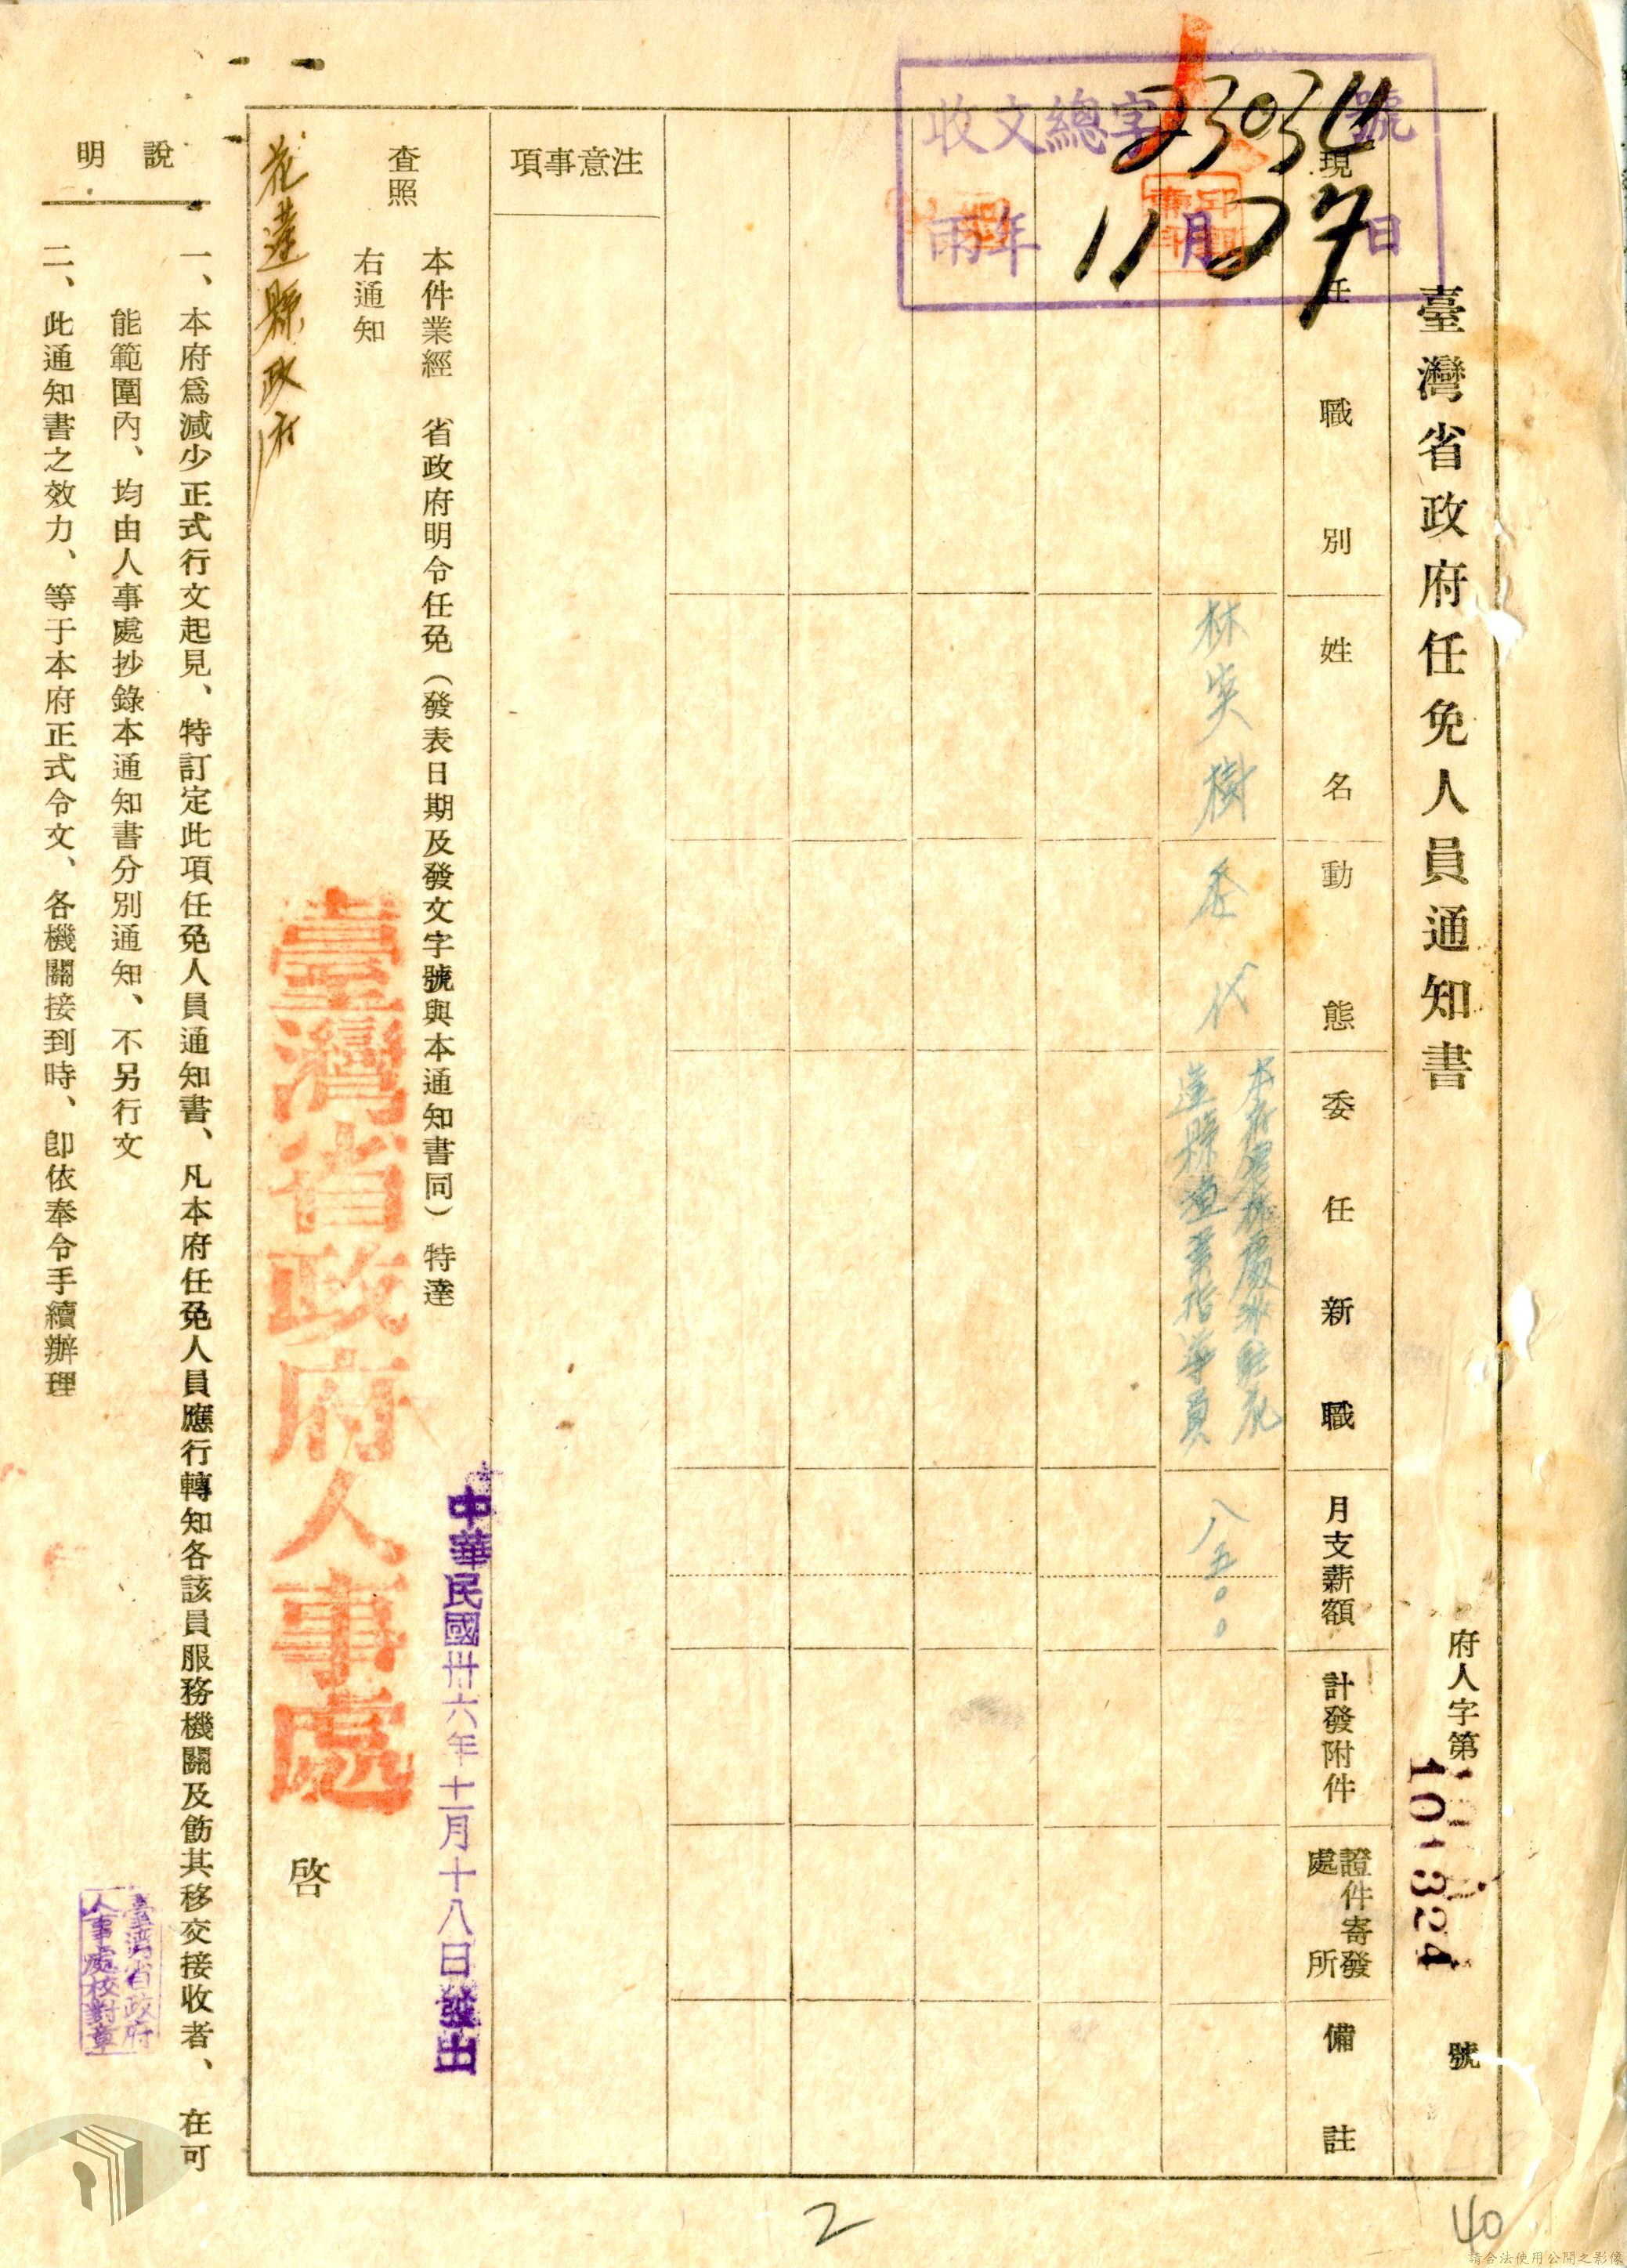 臺灣省政府任免人員通知書
府人字第
101324
號
收文總字 號
23034
年 月 日
11 27
現任職別
姓名
動態
委任新職
月支薪額
計發附件
證件寄發處所
備註
林 樹
委代
本府農林處派駐花
蓮縣漁業指導員
八五〇〇
注意事項
本件業經 省政府明令任免（發表日期及發文字號與本通知書同）特達
查照
右通知
花蓮縣政府
中華民國卅六年十一月十八日發出
臺灣省政府人事處
啓
說明
一、本府爲減少正式行文起見、特訂定此項任免人員通知書、凡本府任免人員應行轉知各該員服務機關及飭其移交接收者、在可
能範圍內、均由人事處抄錄本通知書分別通知、不另行文
二、此通知書之效力、等于本府正式令文、各機關接到時、卽依奉令手續辦理
臺灣省政府
人事處校對章
2
40
請合法使用公開之影像